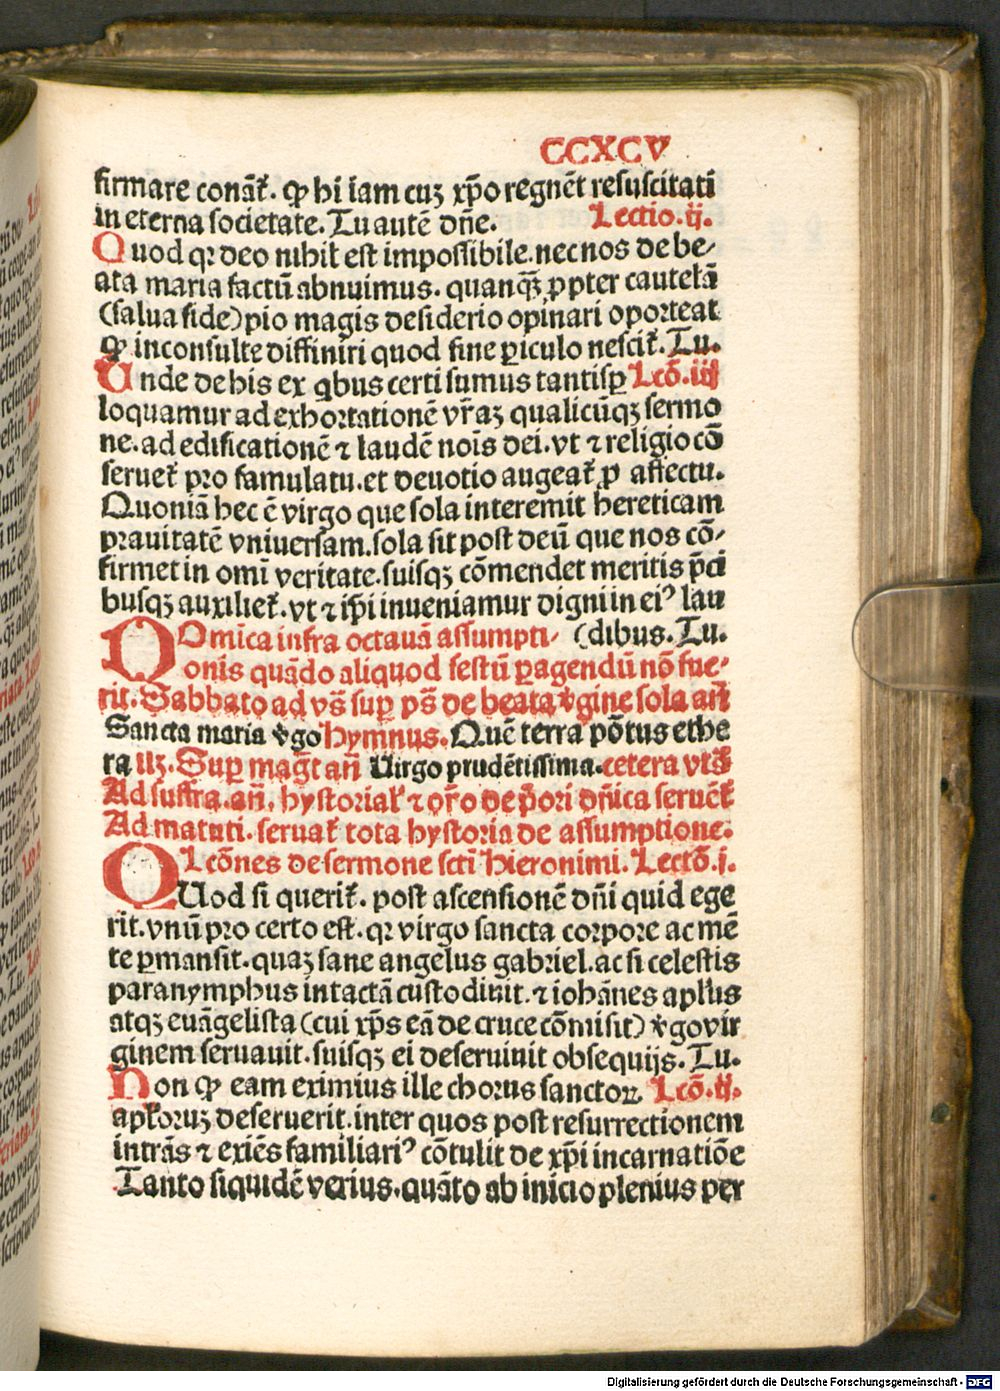 CCXCV
firmare conat᷒. ꝙ hi iam cuȝ xp̄o regnēt resuscitati
in eterna societate. Tu autē dn̄e. Lectio.ij.
Quod qꝛ deo nihil est impossibile. nec nos de be⸗
ata maria factū abnuimus. quanqȝ̄ ꝓpter cautelā
(salua fide) pio magis desiderio opinari oporteat
ꝙ inconsulte diffiniri quod sine ꝑiculo nescit᷒. Tu.
Unde de his ex qbus certi sumus tantisꝑ Lcō.iij
loquamur ad exhortationē vr̄aȝ qualicūqȝ sermo
ne. ad edificationē ⁊ laudē nois̄ dei. vt ⁊ religio cō
seruet᷒ pro famulatu. et deuotio augeat᷒ ꝓ affectu.
Quoniā hec ē virgo que sola interemit hereticam
prauitatē vniuersam. sola sit post deū que nos cō⸗
firmet in omī veritate. suisqȝ cōmendet meritis p̄ci
busqȝ auxiliet᷒. vt ⁊ ip̄i inueniamur digni in eiꝰ lau
Domīca infra octauā assumpti⸗ (dibus. Tu.
onis quādo aliquod festū ꝑagendū nō fue⸗
rit. Sabbato ad vs̄ suꝑ ps̄ de beata v̾gine sola an̄
Sancta maria v̾go Hymnus. Quē terra pōtus ethe
ra iiȝ. Suꝑ mag̅t an̄ Uirgo prudētissima. cetera vts̄
Ad suffra. an̄. hystorial᷒ ⁊ or̄o de p̄ori dn̄ica seruēt᷒
Ad matuti. seruat᷒ tota hystoria de assumptione.
Lcōnes de sermone scti Hieronimi. Lectō.j.
QUod si querit᷒. post ascensionē dn̄i quid ege
rit. vnū pro certo est. qꝛ virgo sancta corpore ac mē
te ꝑmansit. quaȝ sane angelus gabriel. ac si celestis
paranymphus intactā custodiuit. ⁊ iohānes apl̄us
atqȝ euāgelista (cui xp̄s eā de cruce cōmisit) v̾go vir
ginem seruauit. suisqȝ ei deseruiuit obsequijs. Tu.
Non ꝙ eam eximius ille chorus sanctoꝝ. Lcō.ij.
apl̄oruȝ deseruerit. inter quos post resurrectionem
intrās ⁊ exiēs familiariꝰ cōtulit de xp̄i incarnatiōe
Tanto siquidē verius. quāto ab inicio plenius per
Digitalisierung gefördert durch die Deutsche Forschungsgemeinschaft - DFG